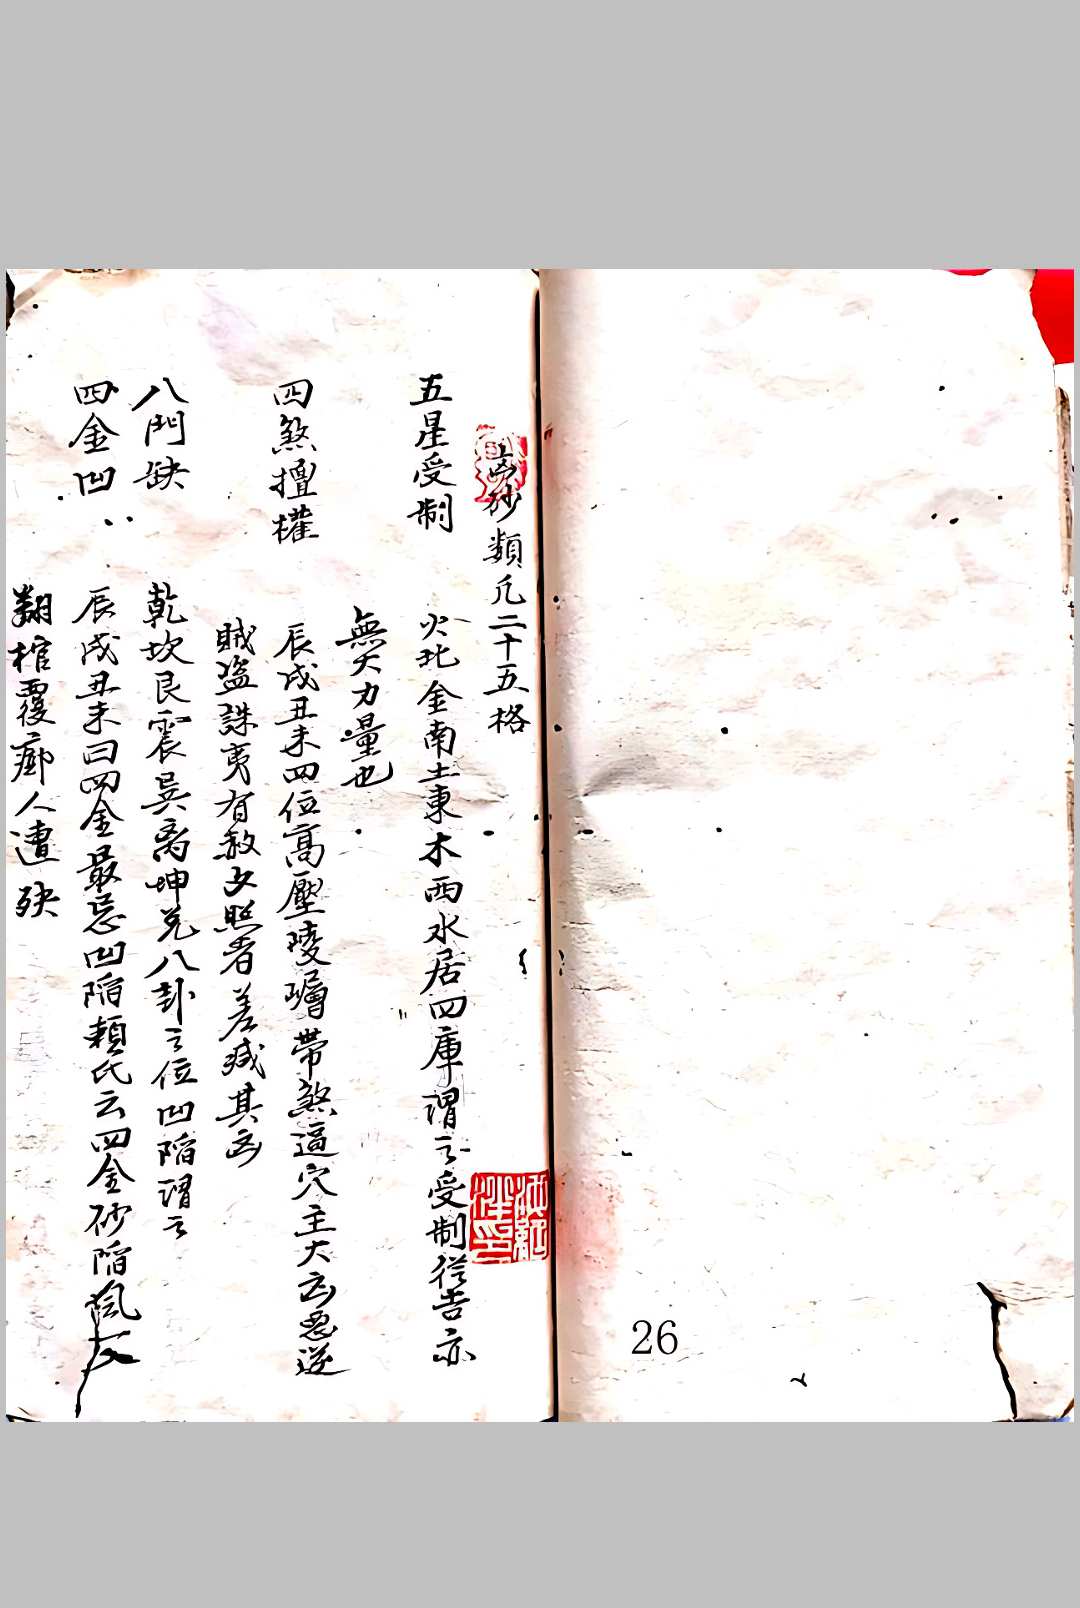 砂類凡二十五格
五星受制
火北金南土東木西水居四庫謂之受制從吉亦
無大力量也
四煞擅權
辰戌丑未四位高壓陵嶒帶煞逼穴主大凶惡逆
賊盜誅夷有赦文照者差減其凶
八門缺
乾坎艮震巽离坤兑八卦之位凹陷謂之
四金凹
辰戌丑未曰四金最忌凹陷賴氏云四金砂陷風
翻棺覆 人遭殃
26